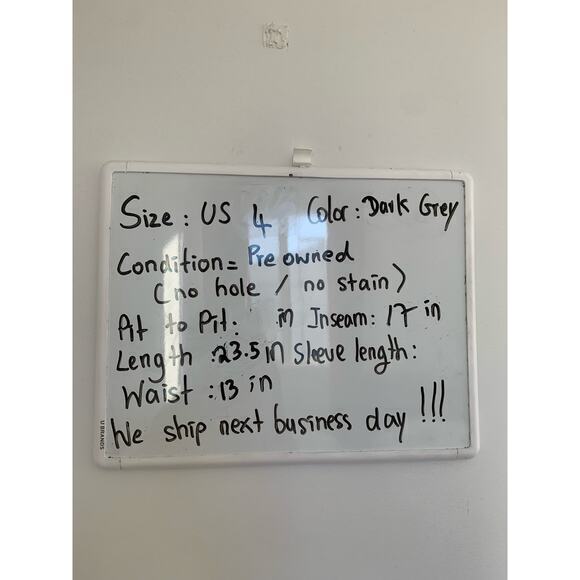 Size : US 4 Color : Dark Grey
Condition = Pre owned
(no hole / no stain)
Pit to Pit: in Inseam: 17 in
Length : 23.5 in Sleeve length:
Waist : 13 in
We ship next business day !!!
U BRANDS